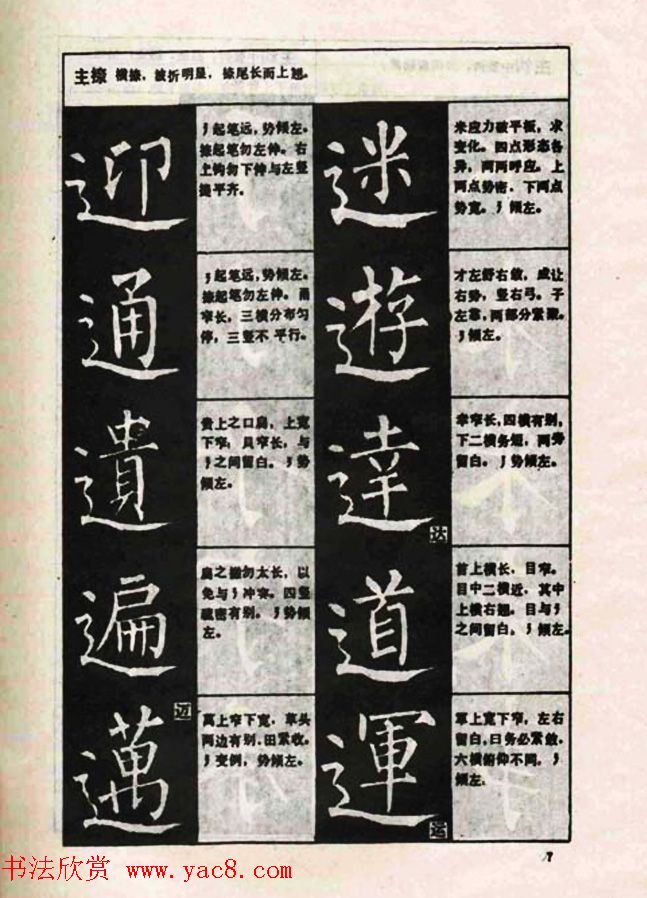 主捺 横捺，波折明显，捺尾长而上翘。
迎
ㄋ起笔远，势倾左。
捺起笔勿左伸。右
上钩勿下伸与左竖
提平齐。
迷
米应力破平板，求
变化。四点形态各
异，两两呼应。上
两点势密，下两点
势宽。ㄋ倾左。
通
ㄋ起笔远，势倾左。
捺起笔勿左伸。甬
窄长，三横分布匀
停，三竖不平行。
遊
才左舒右敛，成让
右势，竖右弓。子
左靠，两部分紧聚。
ㄋ倾左。
遺
贵上之口扁，上宽
下窄，贝窄长，与
ㄋ之间留白。ㄋ势
倾左。
達
达
幸窄长，四横有别，
下二横务短，两旁
留白。ㄋ势倾左。
遍
扁之撇勿太长，以
免与ㄋ冲突。四竖
疏密有别。ㄋ势倾
左。
道
首上横长，目窄。
目中二横近，其中
上横右翘。目与ㄋ
之间留白。ㄋ倾左。
邁
迈
萬上窄下宽，草头
两边有别，田紧收。
ㄋ变例，势倾左。
運
运
軍上宽下窄，左右
留白，曰务必紧敛。
六横俯仰不同，ㄋ
倾左。
书法欣赏 www.yac8.com